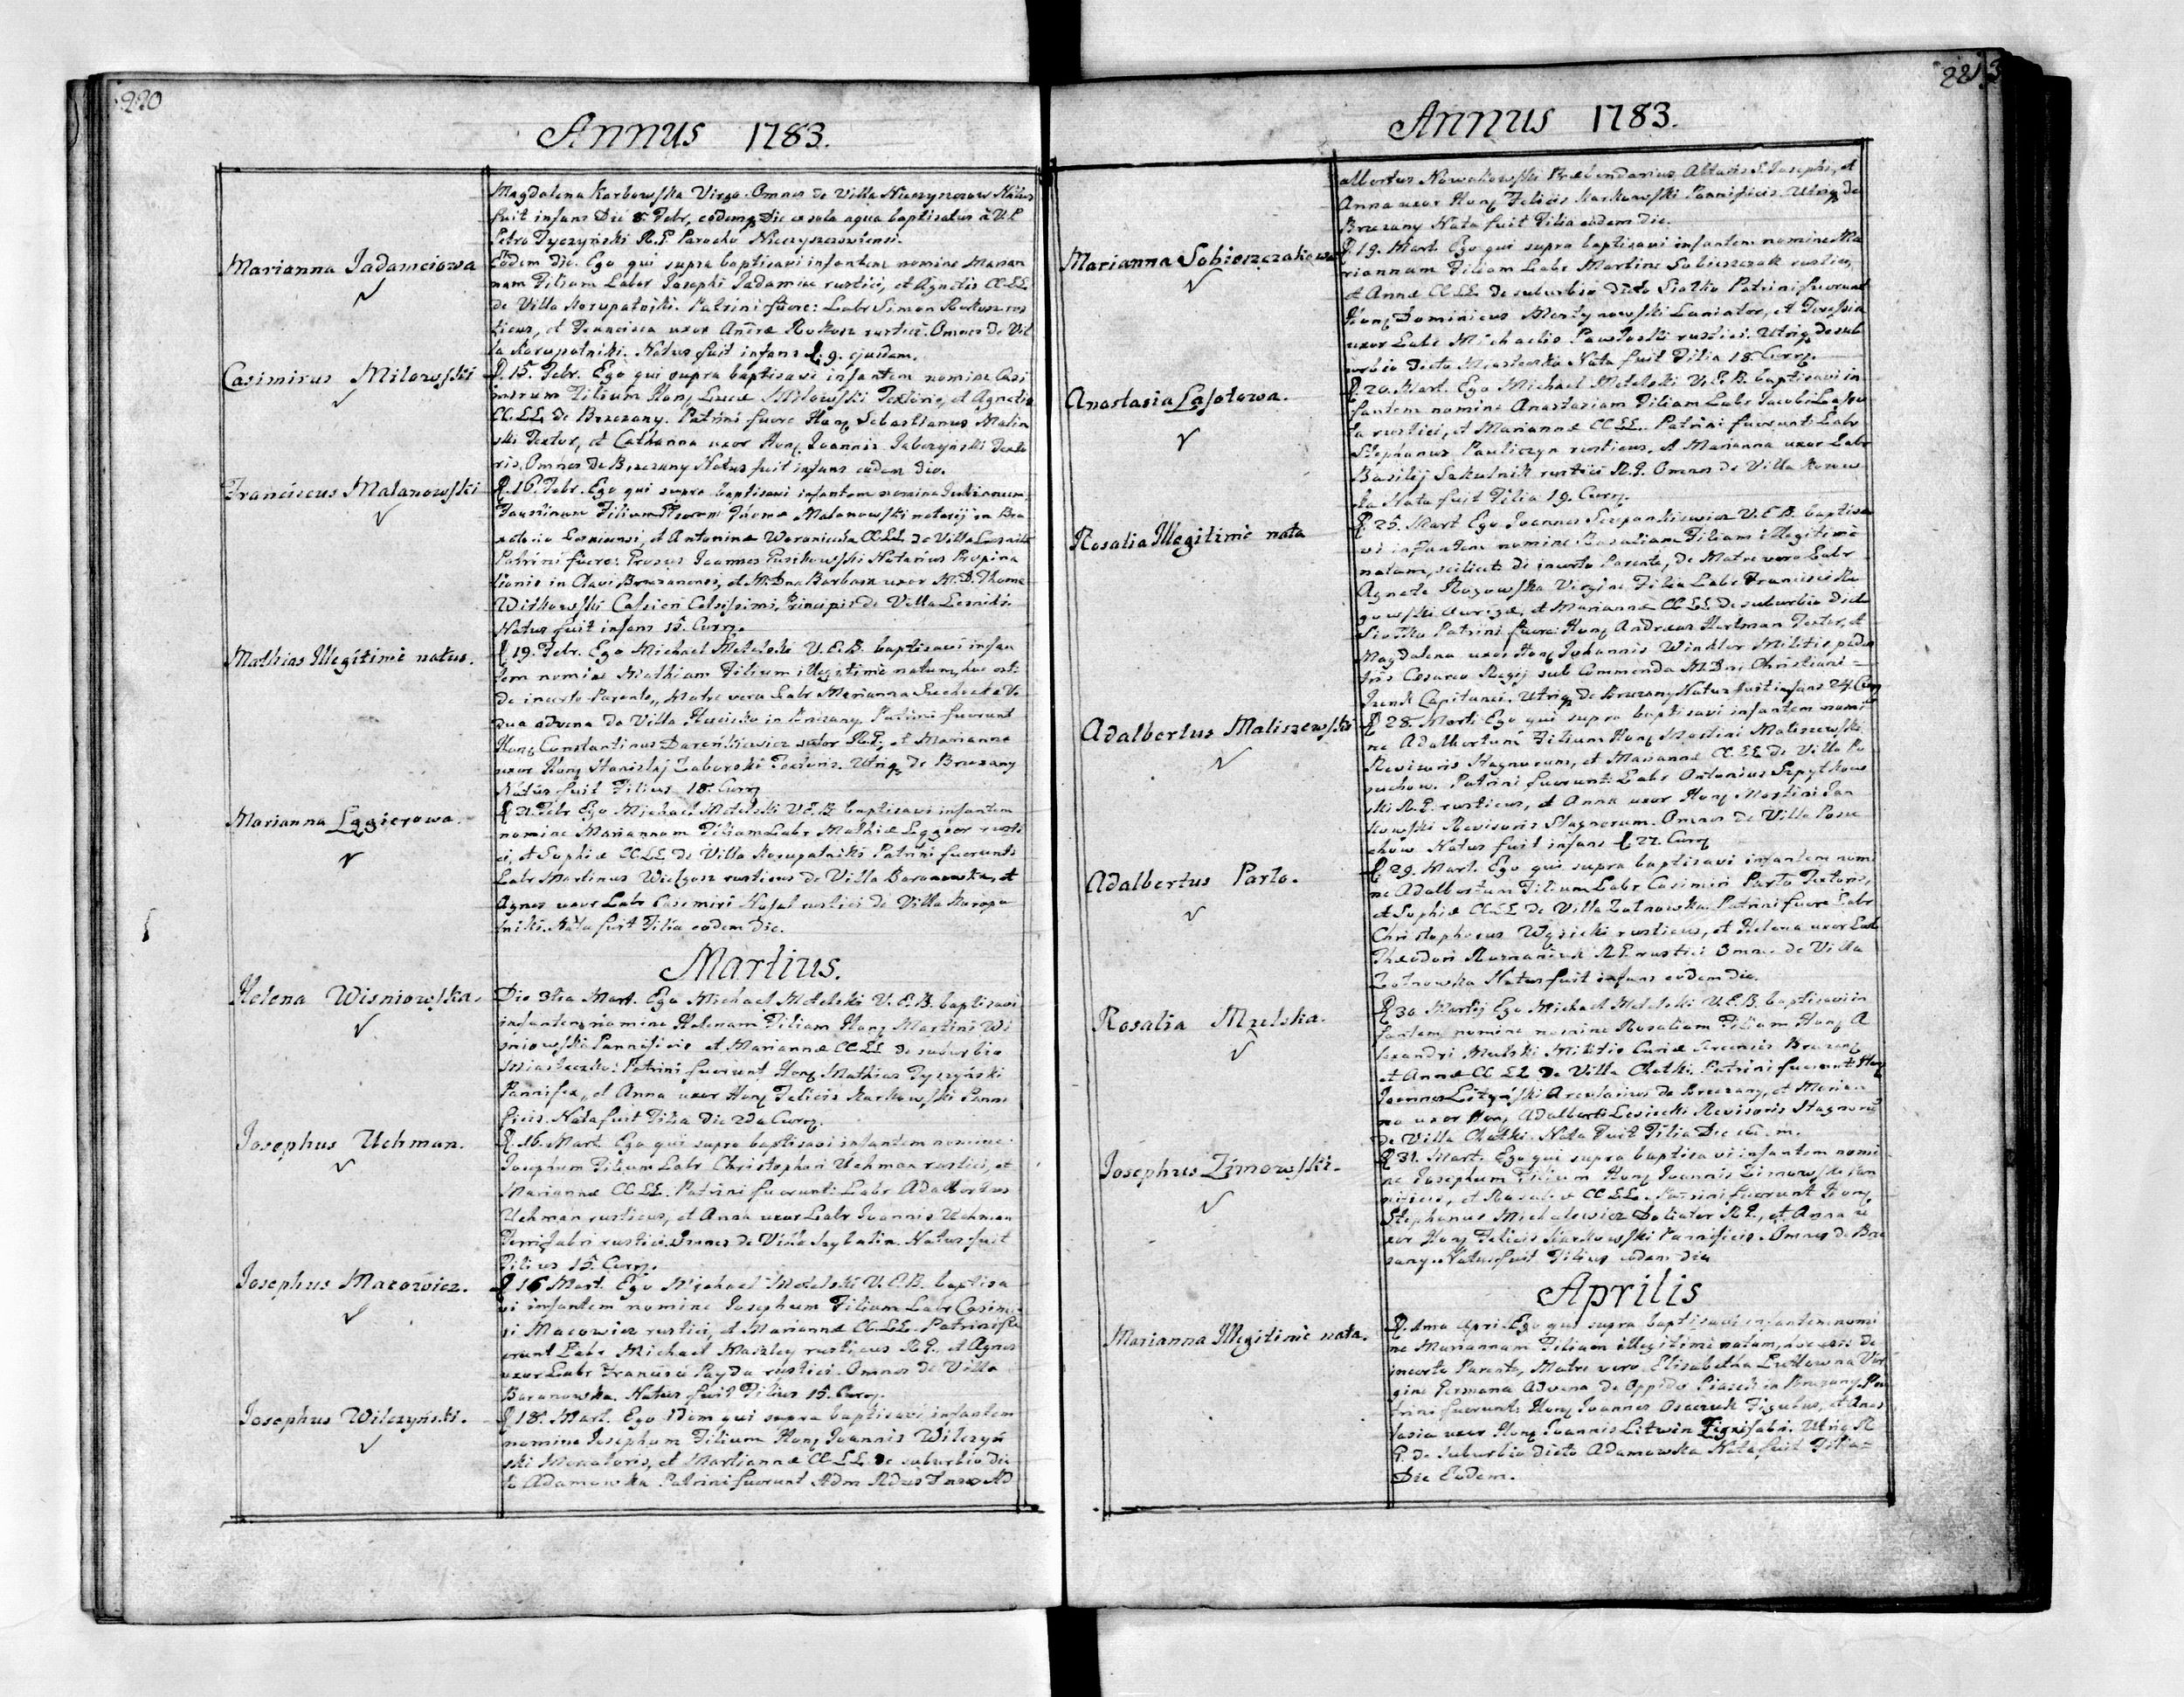 220
Annus 1783.
Magdalena Karbowska Virgo. Omnes de Villa Nieczyszczow Natus
fuit infans Die 8. Febr, eodemq Die ex sola aqua baptisatus à
Petro Tyczyński R.G. Parocho Nieczyszczowiensi.
Marianna Jadamciowa
Eodem die. Ego qui supra baptisavi infantem nomine Marian
nam Filiam Labor Josephi Jadamiec rustici, et Agnetis CC.LL
de Villa Koropatniki. Patrini fuere: Labr Simon Rokosz rus
ticus, et Francisca uxor Andreæ Rokosz rustici. Omnes de Vil
la Koropatniki. Natus fuit infans d. 9. ejusdem.
Casimirus Milowski
d. 15. Febr. Ego qui supra baptisavi infantem nomine Casi
mirum Filium Hon Lucæ Milowski Textoris, et Agnetis
CC.LL de Brzezany. Patrini fuere Hon Sebastianus Malin
ski Textor, et Catharina uxor Hon Joannis Jabczyński Texto
ris. Omnes de Brzezany Natus fuit infans eodem die.
Franciscus Malanowski
d. 16. Febr. Ego qui supra baptisavi infantem nomine Julianum
Faustinum Filium Thomæ Malanowski notarij in Bra
et Antoninæ CC.LL de Villa Lesniki
Patrini fuere: Joannes Pusikowski Notarius Propina
tionis in Clavi Brzezanensi, et M.Dna Barbara uxor M.D. Thomæ
Witkowski Celsissimi Principis de Villa Lesniki.
Natus fuit infans 15. Curr.
Mathias Illegitimè natus.
d 19. Febr. Ego Michael Metelski V.E.B. baptisavi infan
tem nomine Mathiam Filium illegitimè natum, hoc est
de incerto Parente, Matre vero Labr Marianna Vi
dua advena de Villa Hucisko in Brzezany. Patrini fuerunt
Hon Constantinus Dareńkiewicz R.G, et Marianna
uxor Hon Stanislaj Zaborski Textoris. Utriq de Brzezany
Natus fuit Filius 18. Curr
Marianna Łęgierowa.
d 21. Febr Ego Michael Metelski V.E.B baptisavi infantem
nomine Mariannam Filiam Labr Mathiæ rusti
ci, et Sophiæ CC.LL de Villa Koropatniki Patrini fuerunt
Labr Martinus Wielgosz rusticus de Villa Baranowka, et
Agnes uxor Labr Casimiri rustici de Villa Koropa
tniki. Nata fuit Filia eodem Die.
Martius.
Helena Wisniowska.
Die 3tia Mart. Ego Michael Metelski V.E.B. baptisavi
infantem nomine Helenam Filiam Hon Martini Wi
sniowski Pannificis et Mariannæ CC.LL de suburbio
Miasteczko. Patrini fuerunt Hon Mathias Tyszyński
Pannifex, et Anna uxor Hon Felicis Karkowski Panni
ficis. Nata fuit Filia Die 2da Curr.
Josephus Uchman.
d. 16. Mart. Ego qui supra baptisavi infantem nomine
Josephum Filium Labr Christophori Uchman rustici, et
Mariannæ CC.LL. Patrini fuerunt: Labr Adalbertus
Uchman rusticus, et Anna uxor Labr Joannis Uchman
Ferri fabri rustici. Omnes de Villa Szybalin. Natus fuit
Filius 15. Curr.
Josephus Macowicz.
d 16 Mart. Ego Michael Metelski V.E.B. baptisa
vi infantem nomine Josephum Filium Labr Casimi
ri Macowicz rustici, et Mariannæ CC.LL. Patrini fu
erunt Labr Michael Maszley rusticus R.G. et Agnes
uxor Labr Francisci Payda rustici. Omnes de Villa
Baranowka. Natus fuit Filius 15. Curr.
Josephus Wilczyński.
d 18. Mart. Ego idem qui supra baptisavi infantem
nomine Josephum Filium Hon Joannis Wilczyń
ski et Mariannæ CC.LL de suburbio dic
to Adamowka Patrini fuerunt Adm Rdus Ad
221
Annus 1783.
albertus Nowakowski Præbendarius Altaris S. Josephi, et
Anna uxor Hon Felicis Karkowski Pannificis. Utriq de
Brzezany Nata fuit Filia eodem die.
Marianna Sobieszczakowa
d 19. Mart. Ego qui supra baptisavi infantem nomine Ma
riannam Filiam Labr Martini Sobieszczak rustici,
et Annæ CC.LL de suburbio dicto Siolko Patrini fuerunt
Hon Dominicus Martynowski Laniator, et Teressia
uxor Labr Michaelis Pawłoski rustici. Utriq de sub
urbio dicto Miasteczko Nata fuit Filia 18 Curr.
Anastasia Lasotowa.
d. 20. Mart. Ego Michael Metelski V.E.B. baptisavi in
fantem nomine Anastasiam Filiam Labr Jacobi Lasso
ta rustici, et Mariannæ CC.LL. Patrini fuerunt: Labr
Stephanus Pauliczyn rusticus, et Marianna uxor Labr
Basilij Sakulnik rustici R.G. Omnes de Villa
Nata fuit Filia 19. Curr.
Rosalia Illegitimè nata
d 25. Mart Ego Joannes Szczepankiewicz V.E.B. baptisa
vi infantem nomine Rosaliam Filiam illegitimè
natam, scilicet de incerto Parente, de Matre vero Labr
Agnete Rogowska Virgine Filia Labr Francisci Ro
gowski Aurigæ, et Mariannæ CC.LL de suburbio dicto
Siołko Patrini fuere Hon Andreas Hertman Textor, et
Magdalena uxor Hon Johannis Winkler Militis pedes
tris Cesareo Regij sub Commenda M.Dni Christiani
Capitanei. Utriq de Brzezany Natus fuit infans 24. Curr
Adalbertus Maliszewski
d 28. Mart: Ego qui supra baptisavi infantem nomi
ne Adalbertum Filium Hon Martini Maliszewski
Revisoris Stagnorum, et Mariannæ CC.LL de Villa Po
suchow. Patrini fuerunt: Labr Antonius Szpytkow
ski R.G. rusticus, et Anna uxor Hon Martini Jan
kowski Revisoris Stagnorum. Omnes de Villa Posu
chow Natus fuit infans d 27. Curr
Adalbertus Parto.
d 29. Mart. Ego qui supra baptisavi infantem nomi
ne Adalbertum Filium Labr Casimiri Parto Textoris,
et Sophiæ CC.LL de Villa Zolnowka Patrini fuere Labr
Christophorus Wysicki rusticus, et Helena uxor Labr
Theodori Romaniuk R.G. rustici Omn. de Villa
Zolnowka Natus fuit infans eodem die.
Rosalia Mzelska.
d 30 Martij Ego Michael Metelski V.E.B. baptisavi in
fantem nomine nomine Rosaliam Filiam Hon A
lexandri Militis Curiæ Arcensis Brzezan
et Annæ CC.LL de Villa Chatki. Patrini fuerunt: Hon
Joannes Lityński Arcularius de Brzezany, et Marian
na uxor Hon Adalberti Lesiecki Revisoris Stagnorū
de Villa Chatki. Nata Fuit Filia Die
Josephus Zimowski.
d 31. Mart. Ego qui supra baptisavi infantem nomi
ne Josephum Filium Hon Joannis Zimowski Pan
nificis, et Rosaliæ CC.LL. Patrini fuerunt Hon
Stephanus Michalewicz Doliator R.G., et Anna u
xor Hon Felicis Karkowski Pannificis. Omnes de Brze
zany. Natus fuit Filius eodem die
Aprilis
Marianna Illegitimè nata.
d. 1ma Apri. Ego qui supra baptisavi infantem nomi
ne Mariannam Filiam illegitimè natam, hoc est de
incerto Parente, Matre vero Elisabetha Vir
gine Germana Advena de Oppido in Brzezany. Pa
trini fuerunt: Hon Joannes Figulus, et Anas
tasia uxor Hon Joannis Litwin Lignifabri. Utriq R.
G. de suburbio dicto Adamowka Nata fuit Filia
Die Eodem.